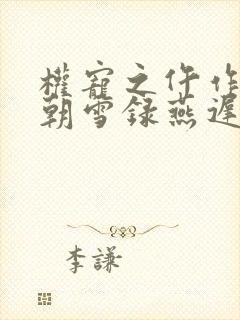 權寵之仵作
朝雪録燕遲
李謙